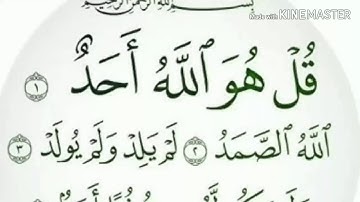 بسم الله الرحمن الرحيم
made with KINEMASTER
قُلْ هُوَ ٱللَّهُ أَحَدٌ ١
ٱللَّهُ ٱلصَّمَدُ ٢ لَمْ يَلِدْ وَلَمْ يُولَدْ ٣